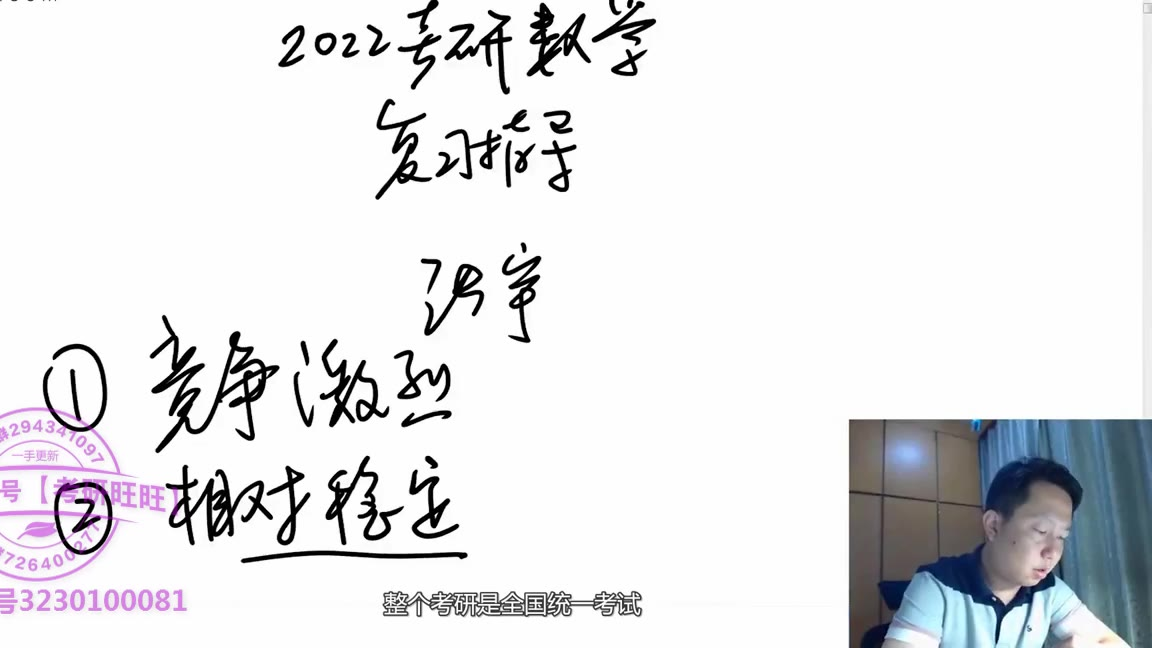 2022考研数学
复习指导
洪宇
① 竞争激烈
群294341097
一手更新
号【考研旺旺】
② 相对稳定
726400277
号3230100081
整个考研是全国统一考试